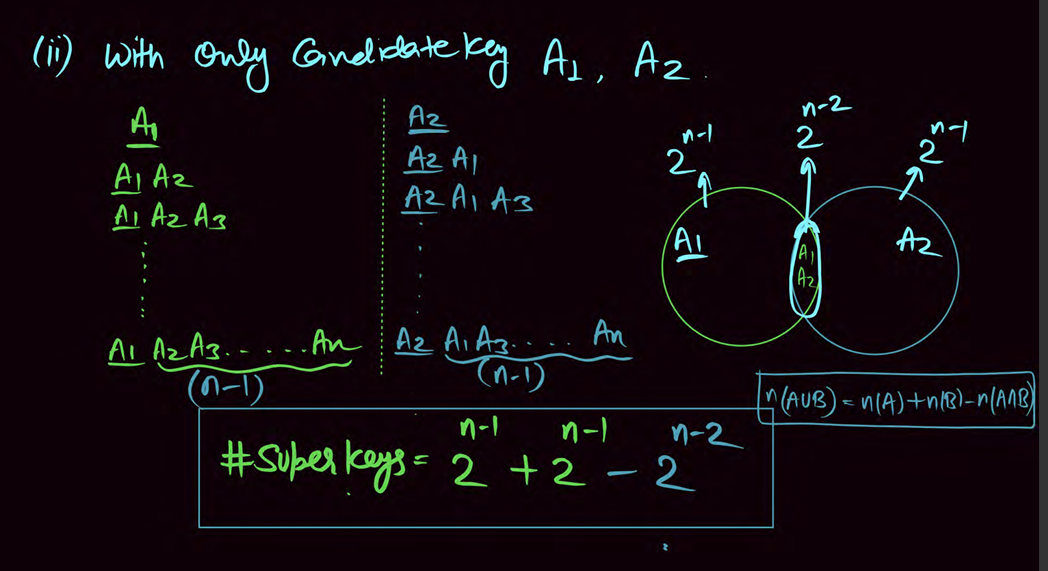 (ii) With Only Candidate key A1, A2.
A1
A1 A2
A1 A2 A3
A1 A2 A3.......An
(n-1)
A2
A2 A1
A2 A1 A3
A2 A1 A3..... An
(n-1)
2^n-1
2^n-2
2^n-1
A1
A1
A2
A2
n(A∪B) = n(A)+n(B)-n(A∩B)
#Super keys = 2^n-1 + 2^n-1 - 2^n-2